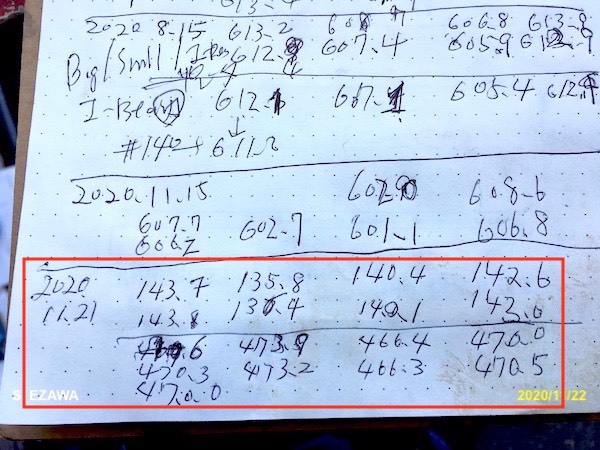 613.4
2020.8.15 613.2 606.8 613.9
Big/Small/I-Bea 612.9 607.4 605.9
I-Beam 612.1 607.1 605.4 612.9
↓
#140→ 611.2
2020.11.15 602.9 608.6
607.7 602.7 601.1 606.8
606.2
2020 143.7 135.8 140.4 142.6
11.21 143.8 136.4 140.1 143.0
470.6 473.9 466.4 470.0
470.3 473.2 466.3 470.5
470.0
S EZAWA 2020/11/22